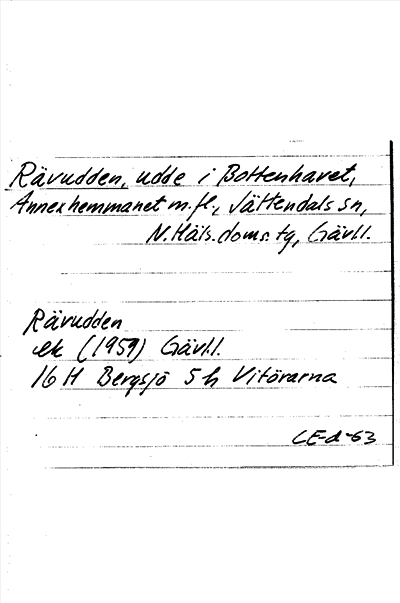 Rävudden, udde i Bottenhavet,
Annexhemmanet m.fl., Jättendals sn,
N.Häls.doms.tg, Gävl.l.
Rävudden
ek (1959) Gävl.l.
16 H Bergsjö 5 h Vitörarna
CE-d-63